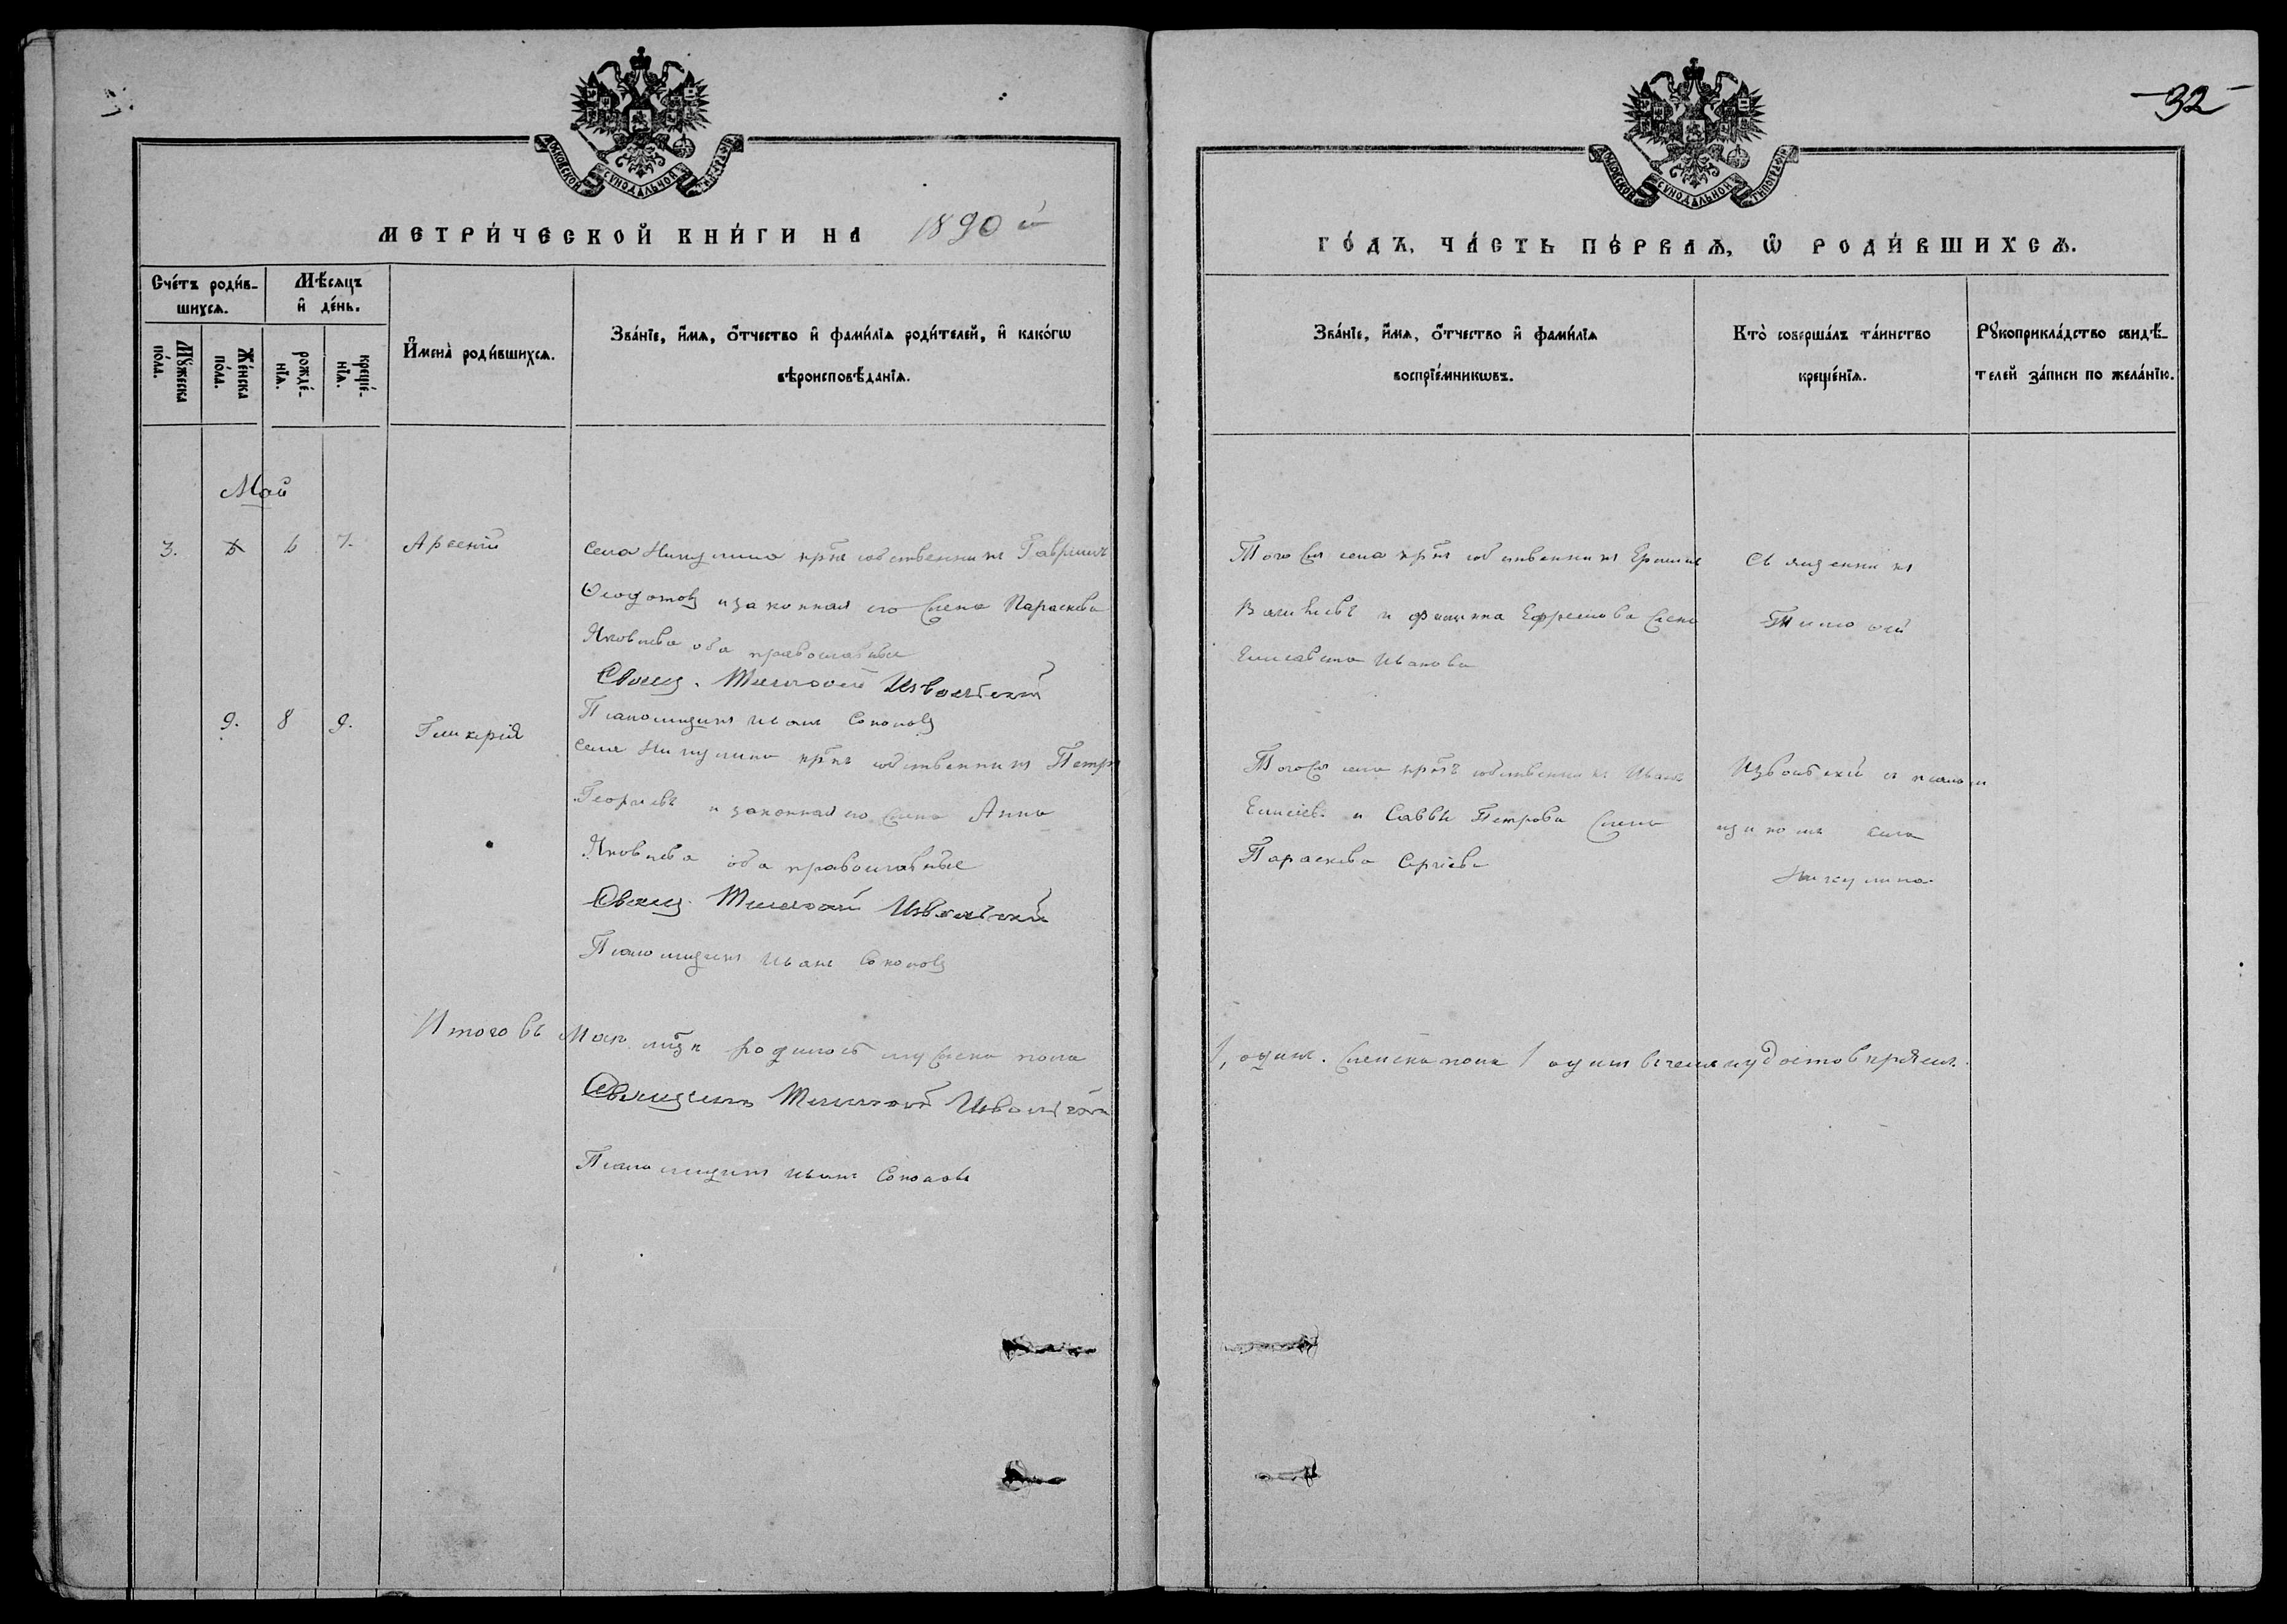 32
МОСКОВСКОЙ СѴНОДАЛЬНОЙ ТИПОГРАФІИ
МОСКОВСКОЙ СѴНОДАЛЬНОЙ ТИПОГРАФІИ
МЕТРИ́ЧЕСКОЙ КНИ́ГИ НА 1890 й
ГО́ДЪ, ЧА́СТЬ ПЕ́РВАѦ, Ѡ РОДИ́ВШИХСѦ.
Сче́тъ роди́в-
шихсѧ.
Мꙋ́жеска по́ла.
Же́нска по́ла.
Мѣ́сѧцъ
и҆ де́нь.
рожде́-
нїѧ.
креще́-
нїѧ.
И҆мена̀ роди́вшихсѧ.
Зва́нїе, и҆́мѧ, ѻ҆́тчество и҆ фами́лїѧ роди́телей, и҆ како́гѡ
вѣроисповѣ́данїѧ.
Зва́нїе, и҆́мѧ, ѻ҆́тчество и҆ фами́лїѧ
воспрїе́мникѡвъ.
Кто̀ соверша́лъ та́инство
креще́нїѧ.
Рꙋкоприкла́дство свидѣ́-
телей за́писи по жела́нїю.
Май
3. 6 7. Арсеній
села Никулина крнъ собственникъ Гавріилъ
Ѳеодотовъ и законная его жена Параскева
Яковлева оба православные
Свящ. Тимоѳей Извольскій
Псаломщикъ Иванъ Соколовъ
Того же села крнъ собственникъ
и Ефремова жена
Елисавета Иванова
Священникъ
Тимоѳей
9. 8 9. Гликерія
села Никулина крнъ собственникъ Петръ
Георгіевъ и законная его жена Анна
Яковлева оба православные
Свящ. Тимоѳей Извольскій
Псаломщикъ Иванъ Соколовъ
Того же села крнъ собственникъ Иванъ
Елисѣевъ и Саввы Петрова жена
Параскева Сергіева
Извольскій съ псалом
щикомъ села
Никулина.
Итого въ Маѣ мцѣ родилось мужеска пола
1, одинъ. женска пола 1 одинъ въ чемъ и удостовѣряемъ.
Священникъ Тимоѳей Извольскій
Псаломщикъ Иванъ Соколовъ